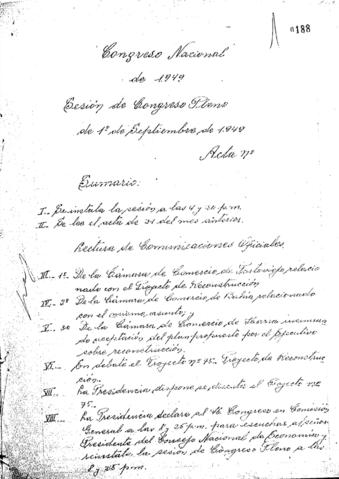 0188
Congreso Nacional
de 1949
Sesión de Congreso Pleno
de 1º de Septiembre, de 1949
Acta nº
Sumario:
I.- Se instala la sesión a las 4 y 20 p.m.
II.- Se lee el acta de 31 del mes anterior.
Lectura de Comunicaciones Oficiales.
III.- 1º De la Cámara de Comercio de Portoviejo relacio
nado con el Proyecto de Reconstrucción
IV.- 2º De la Cámara de Comercio de Bahía relacionado
con el mismo asunto; y
V.- 3º De la Cámara de Comercio de Ibarra
de aceptación del plan propuesto por el Ejecutivo
sobre reconstrucción.
VI.- En debate el Proyecto nº 75. Proyecto de Reconstruc
ción.
VII.- La Presidencia, dispone se discuta el Proyecto nº
75.
VIII.- La Presidencia declara al H. Congreso en Comisión
General a las y 25 p.m. para escuchar al señor
Presidente del Consejo Nacional de Economía y
reinstala la sesión de Congreso Pleno a las
y 25 p.m.